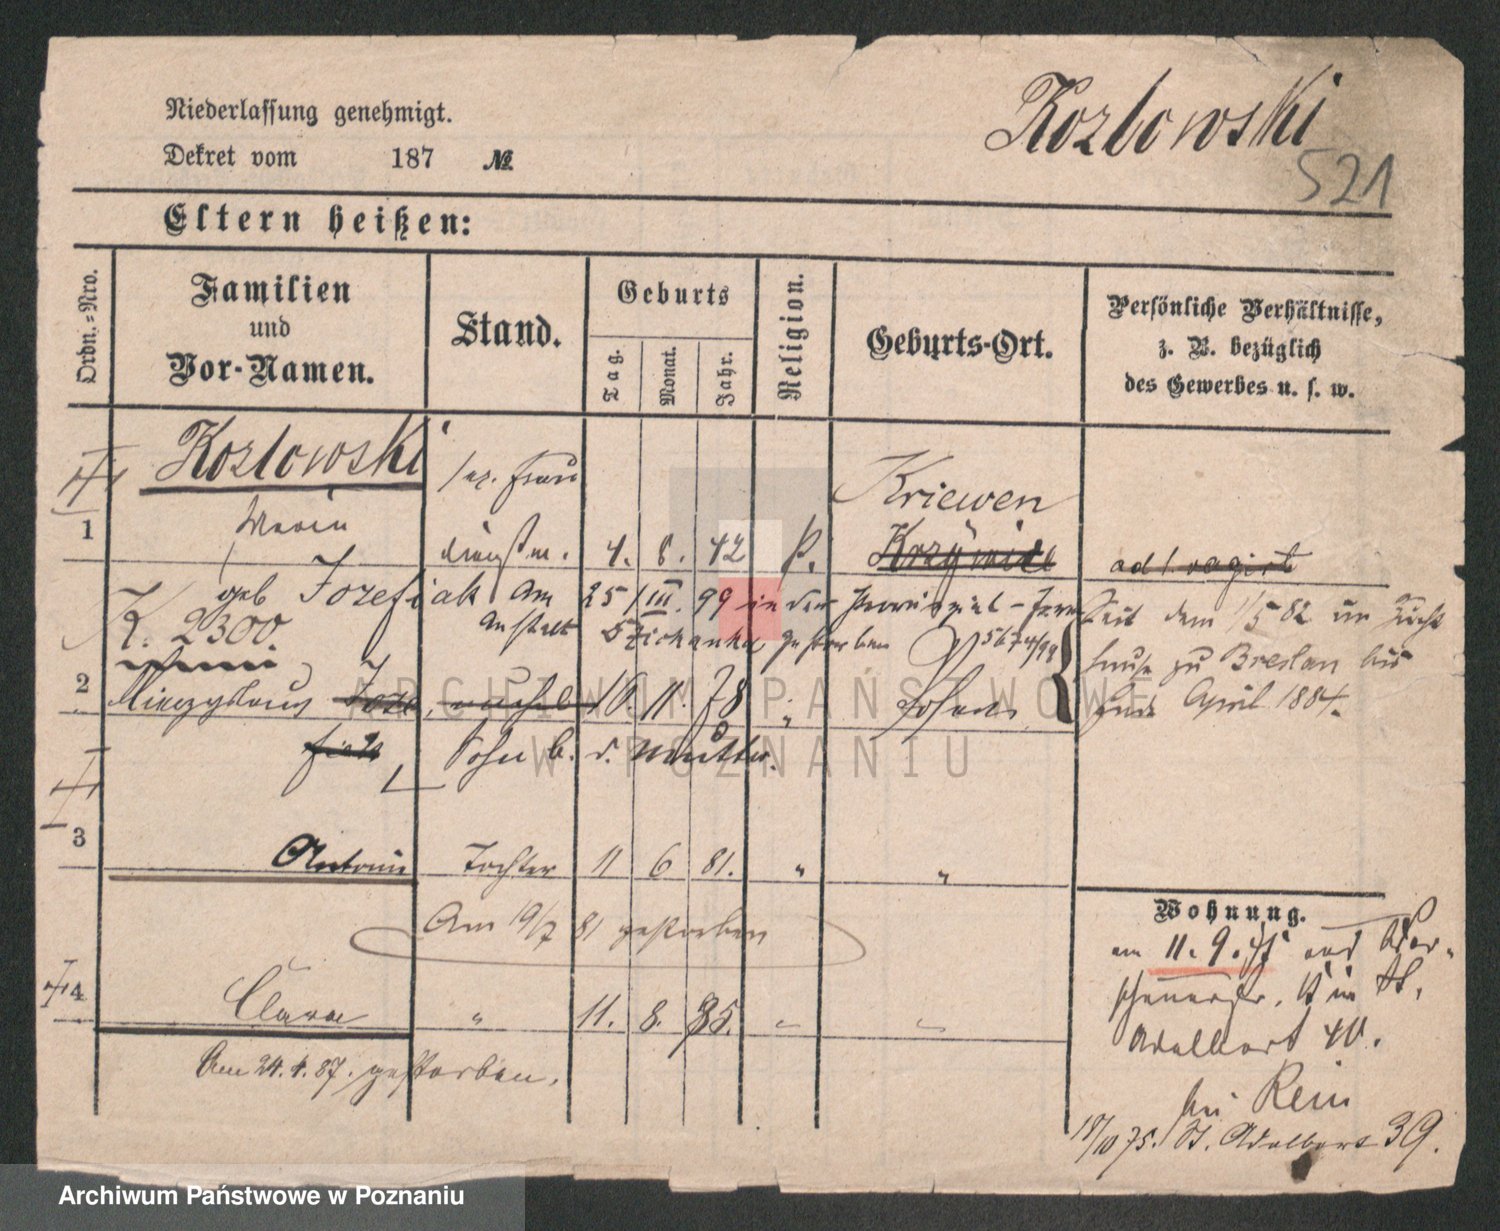 Niederlassung genehmigt.
Dekret vom 187 №
Kozlowski
521
Eltern heißen:
Ordn.-Nro.
Familien
und
Vor-Namen.
Stand.
Geburts
Tag.
Monat.
Jahr.
Religion.
Geburts-Ort.
Persönliche Verhältnisse,
z. B. bezüglich
des Gewerbes u. s. w.
Kozlowski
sep. Frau
Kriewen
1
Maria
dienstm. 4. 8. 42
geb Jozefiak Am 25/III. 99 in der Provinzial-Irren
Anstalt Dziekanka gestorben 5674/99
K. 2300
Seit dem 11/5 82 im Zucht
hause zu Breslau bis
Ende April 1884.
2
Miecyslaus 16. 11. 78 " Posen
Sohn b. d. Mutter.
3
Antonie Tochter 11 6 81. " "
Am 19/7 81 gestorben
4
Clara " 11. 8. 85. " "
Am 24. 4. 87. gestorben.
Wohnung.
am 11. 9. 75
St.
Adalbert 40.
bei Rein
18/10 75. St. Adalbert 39.
ARCHIWUM PAŃSTWOWE
W POZNANIU
Archiwum Państwowe w Poznaniu